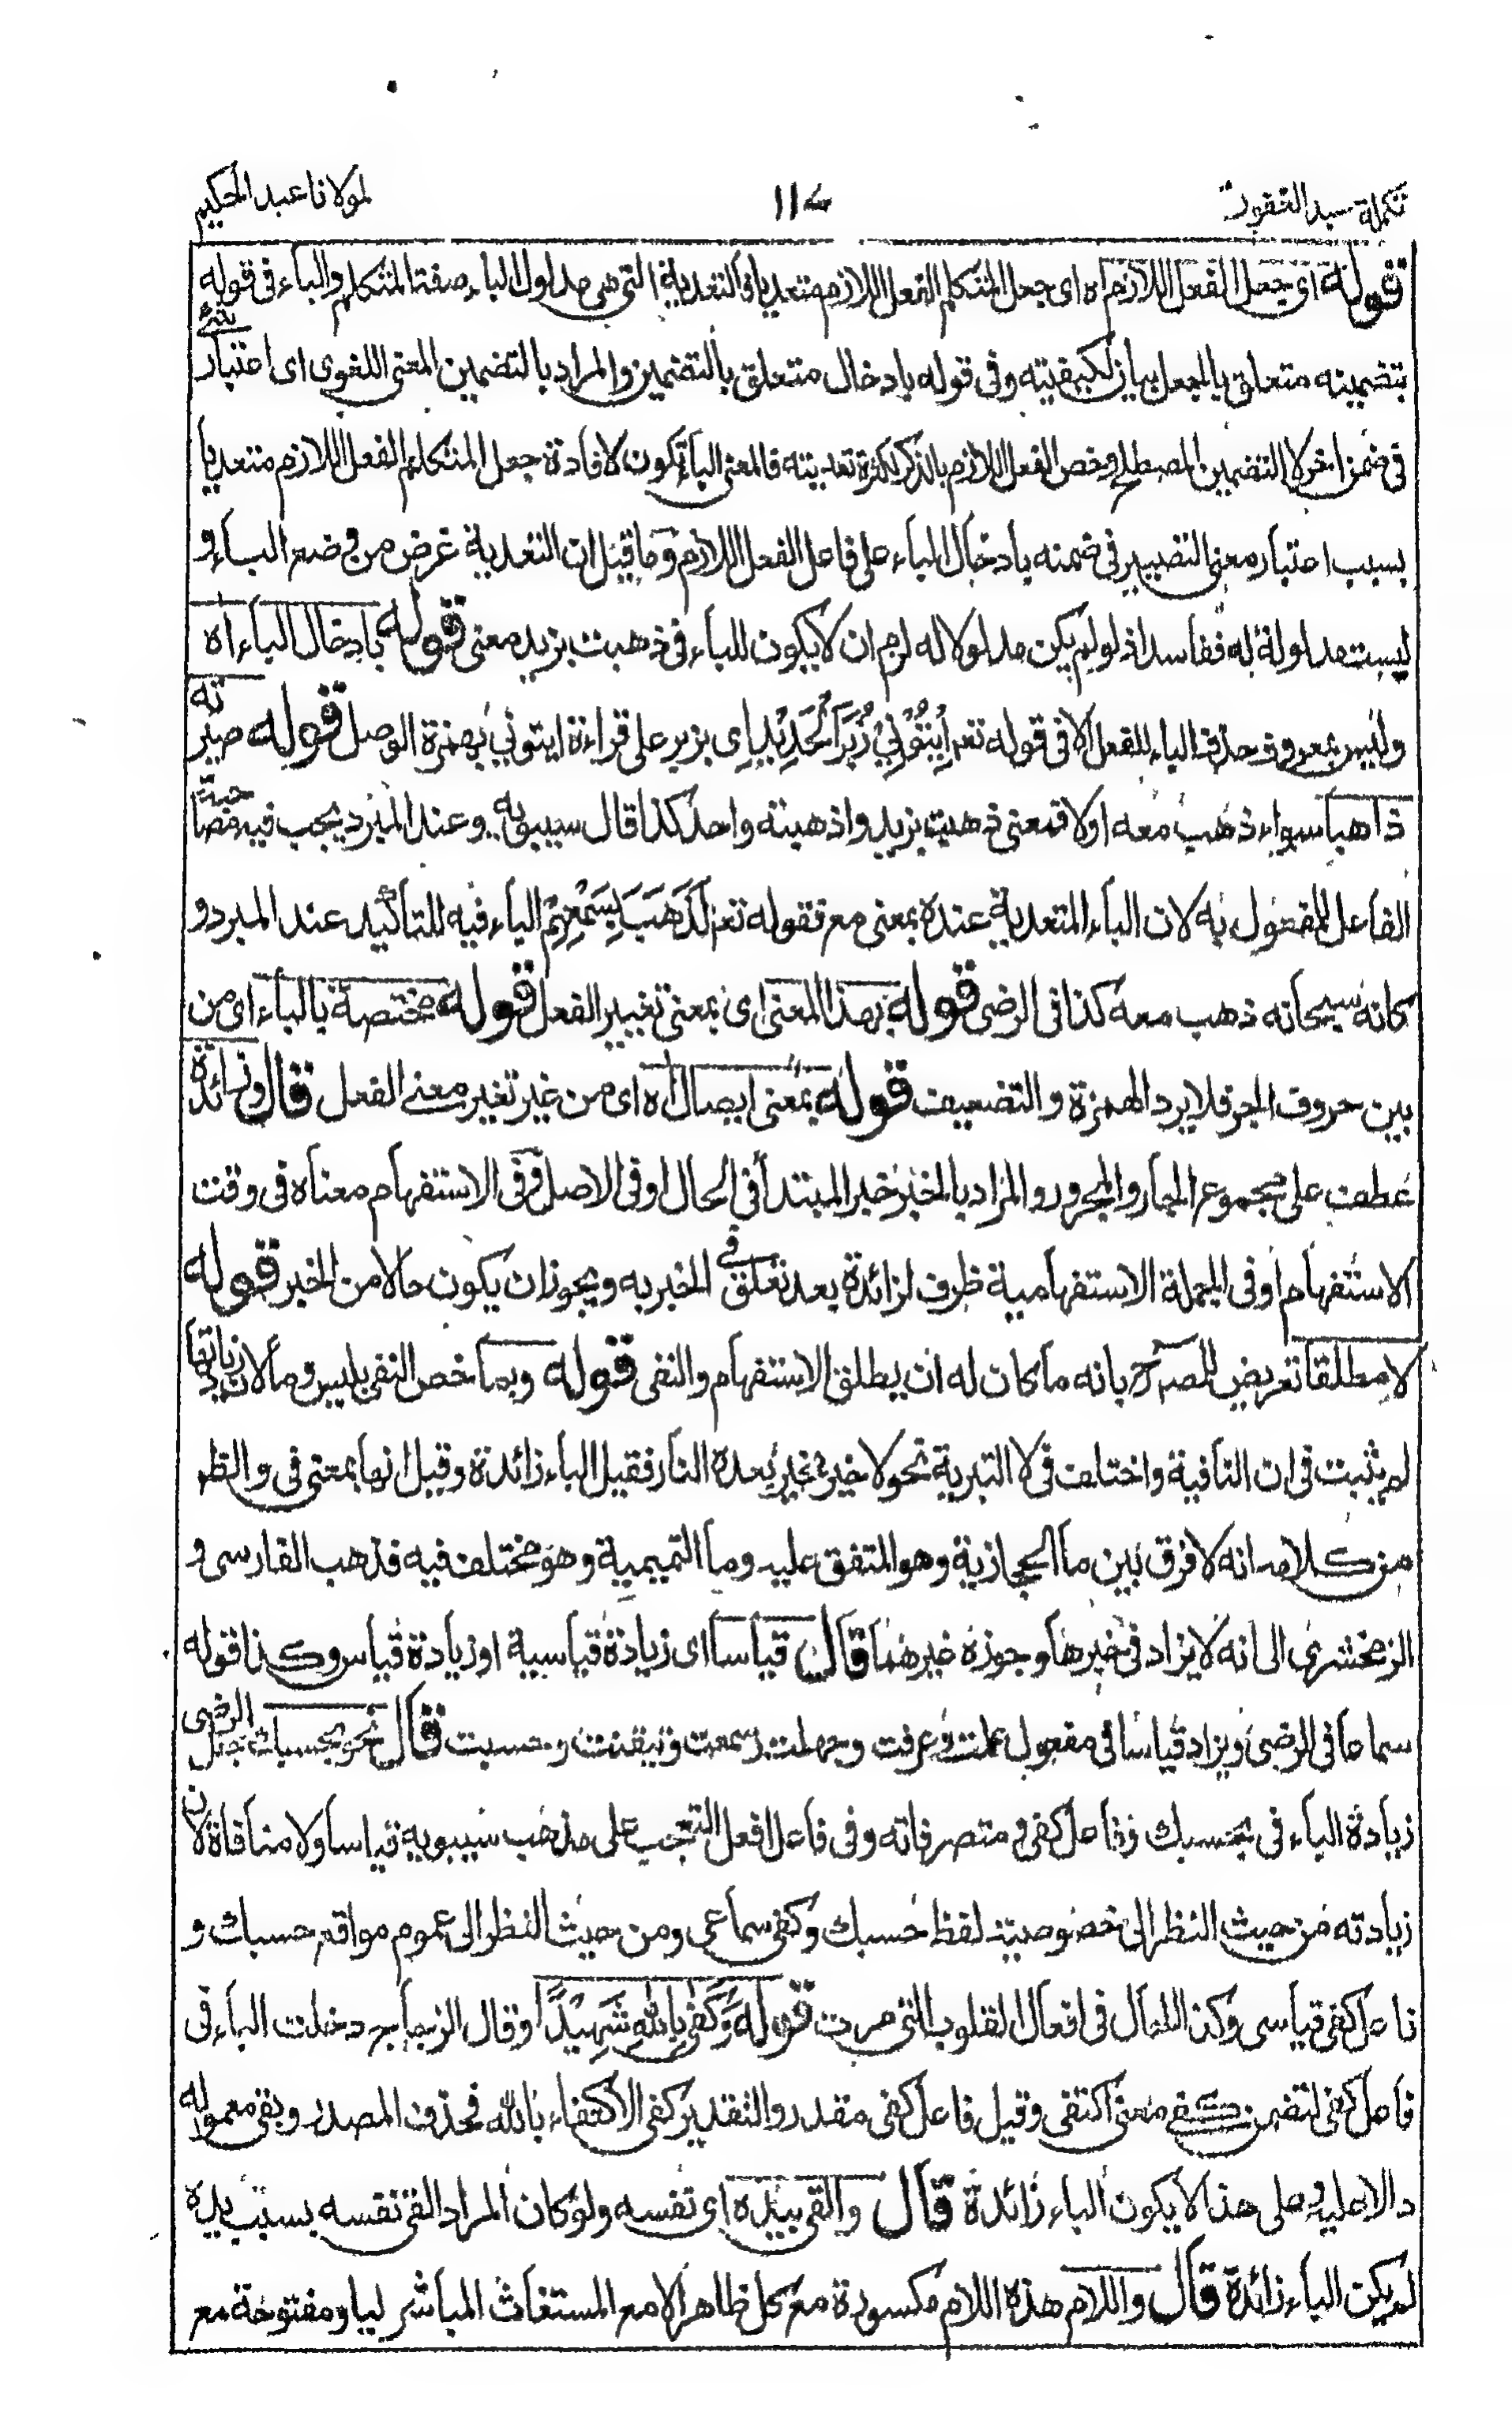 تكملة سيد الغفور
١١٧
لمولانا عبد الحكيم
قوله اى جعل الفعل اللازم اه اى جعل المتكلم الفعل اللازم متعديا فى التعدية التى هى مدلول الباء صفة المتكلم والباء فى قوله
بتضمينه متعلق بالجعل بيان لكيفيته وفى قوله بادخال متعلق بالتضمين والمراد بالتضمين المعنى اللغوى اى اعتبار شئ
فى ضمن اخر لا التضمين المصطلح وخص الفعل اللازم بالذكر لكثرة تعديته فالمعنى الباء تكون لافادة جعل المتكلم الفعل اللازم متعديا
بسبب اعتبار معنى التصيير فى ضمنه بادخال الباء على فاعل الفعل اللازم وما قيل ان التعدية غرض من وضع الباء و
ليست مدلولة له ففاسد اذ لو لم يكن مدلولا له لزم ان لا يكون للباء فى ذهبت بزيد معنى قوله بادخال الباء اه
وليس بمعروف حذف الباء للفعل الا فى قوله تعم اِيْتُوْنِيْ زُبَرَ الْحَدِيْدِ اى بزبر على قراءة ايتونى بهمزة الوصل قوله صيرته
ذاهبا سواء ذهب معه اولا فمعنى ذهبت بزيد واذهبته واحد كذا قال سيبويه وعند المبرد يجب فيه مصاحبة
الفاعل للمفعول به لان الباء المتعدية عنده بمعنى مع فقوله تعم لَذَهَبَ بِسَمْعِهِمْ الباء فيه للتاكيد عند المبرد و
كانه سبحانه ذهب معه كذا فى الرضى قوله بهذا المعنى اى بمعنى تغيير الفعل قوله مختصة بالباء اى من
بين حروف الجر فلا يرد الهمزة والتضعيف قوله بمعنى ايصال اه اى من غير تغير معنى الفعل قال وزائدة
عطف على مجموع الجار والمجرور والمراد بالخبر خبر المبتدأ فى الحال او فى الاصل وفى الاستفهام معناه فى وقت
الاستفهام او فى الجملة الاستفهامية ظرف لزائدة بعد تعلق فى الخبر به ويجوز ان يكون حالا من الخبر قوله
لا مطلقا تعريض للمصرح بانه ما كان له ان يطلق الاستفهام والنفى قوله وبما خص النفى بليس وما لان زيادتها
لم يثبت فى ان النافية واختلف فى لا التبرية نحو لا خير بخير بعده النار فقيل الباء زائدة وقيل انها بمعنى فى والظ
من كلامه انه لا فرق بين ما الحجازية وهو المتفق عليه وما التميمية وهو مختلف فيه فذهب الفارسى و
الزمخشرى الى انه لا يزاد فى خبرها وجوزه غيرهما قال قياسا اى زيادة قياسية او زيادة قياس وكذا قوله
سماعا فى الرضى ويزاد قياسا فى مفعول علمت وعرفت وجهلت وسمعت وتيقنت وحسبت قال نحو بحسبك جعل الرضى
زيادة الباء فى بحسبك وفاعل كفى و متصرفاته وفى فاعل افعل التعجب على مذهب سيبويه قياسا ولا منافاة لان
زيادته من حيث النظر الى خصوصية لفظ حسبك وكفى سماعى ومن حيث النظر الى عموم مواقع حسبك و
فاعل كفى قياسى وكذا الحال فى افعال القلوب التى مرت قوله وَكَفٰى بِاللّٰهِ شَهِيْدًا وقال الزجاج دخلت الباء فى
فاعل كفى لتضمن كفى معنى اكتفى وقيل فاعل كفى مقدر والتقدير كفى الاكتفاء بالله فحذف المصدر وبقى معموله
دالا عليه وعلى هذا لا يكون الباء زائدة قال والقى بيده اى نفسه ولو كان المراد القى نفسه بسبب يده
لم يكن الباء زائدة قال واللام هذه اللام مكسورة مع كل ظاهر الا مع المستغاث المباشر ليا ومفتوحة مع